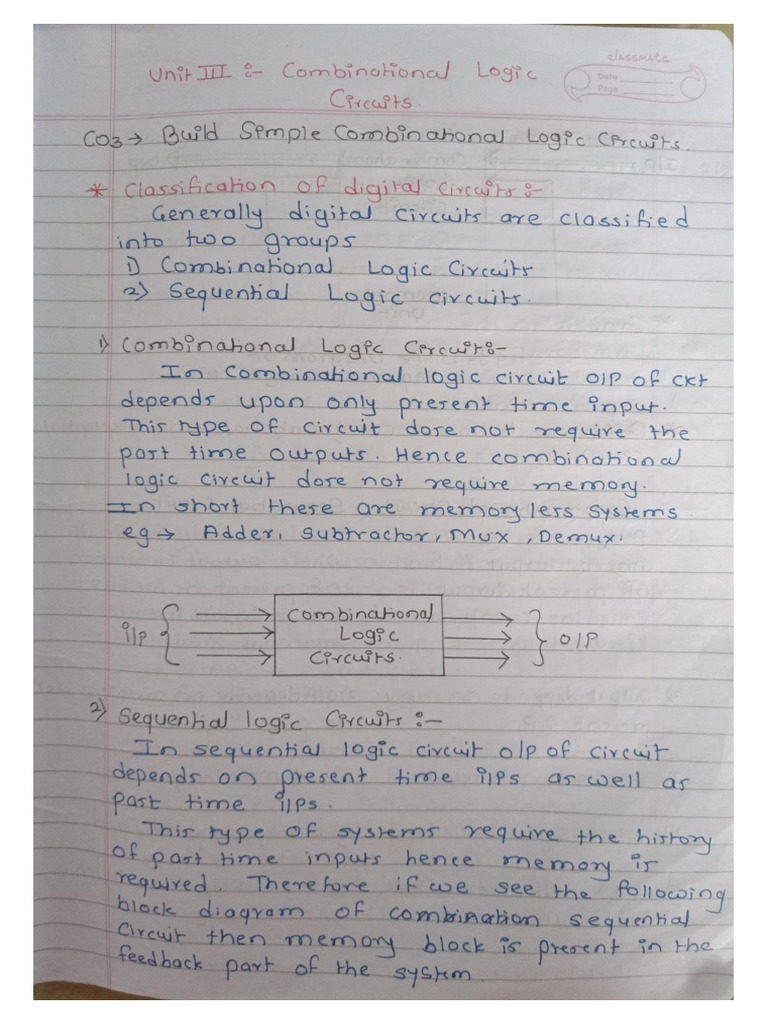 classmate
Date
Page
Unit III :- Combinational Logic
Circuits.
CO3 → Build Simple Combinational Logic Circuits.
* Classification of digital circuits :-
Generally digital circuits are classified
into two groups
1) Combinational Logic Circuits
2) Sequential Logic circuits.
1) Combinational Logic Circuit:-
In Combinational logic circuit O/P of ckt
depends upon only present time input.
This type of circuit dose not require the
past time outputs. Hence combinational
logic circuit dose not require memory.
In short these are memory less systems
eg → Adder, subtractor, Mux, Demux.
i/p { Combinational
Logic } O/P
Circuits.
2) Sequential logic Circuits :-
In sequential logic circuit o/p of circuit
depends on present time i/ps as well as
past time i/ps.
This type of systems require the history
of past time inputs hence memory is
required. Therefore if we see the following
block diagram of combination sequential
circuit then memory block is present in the
feedback part of the system.